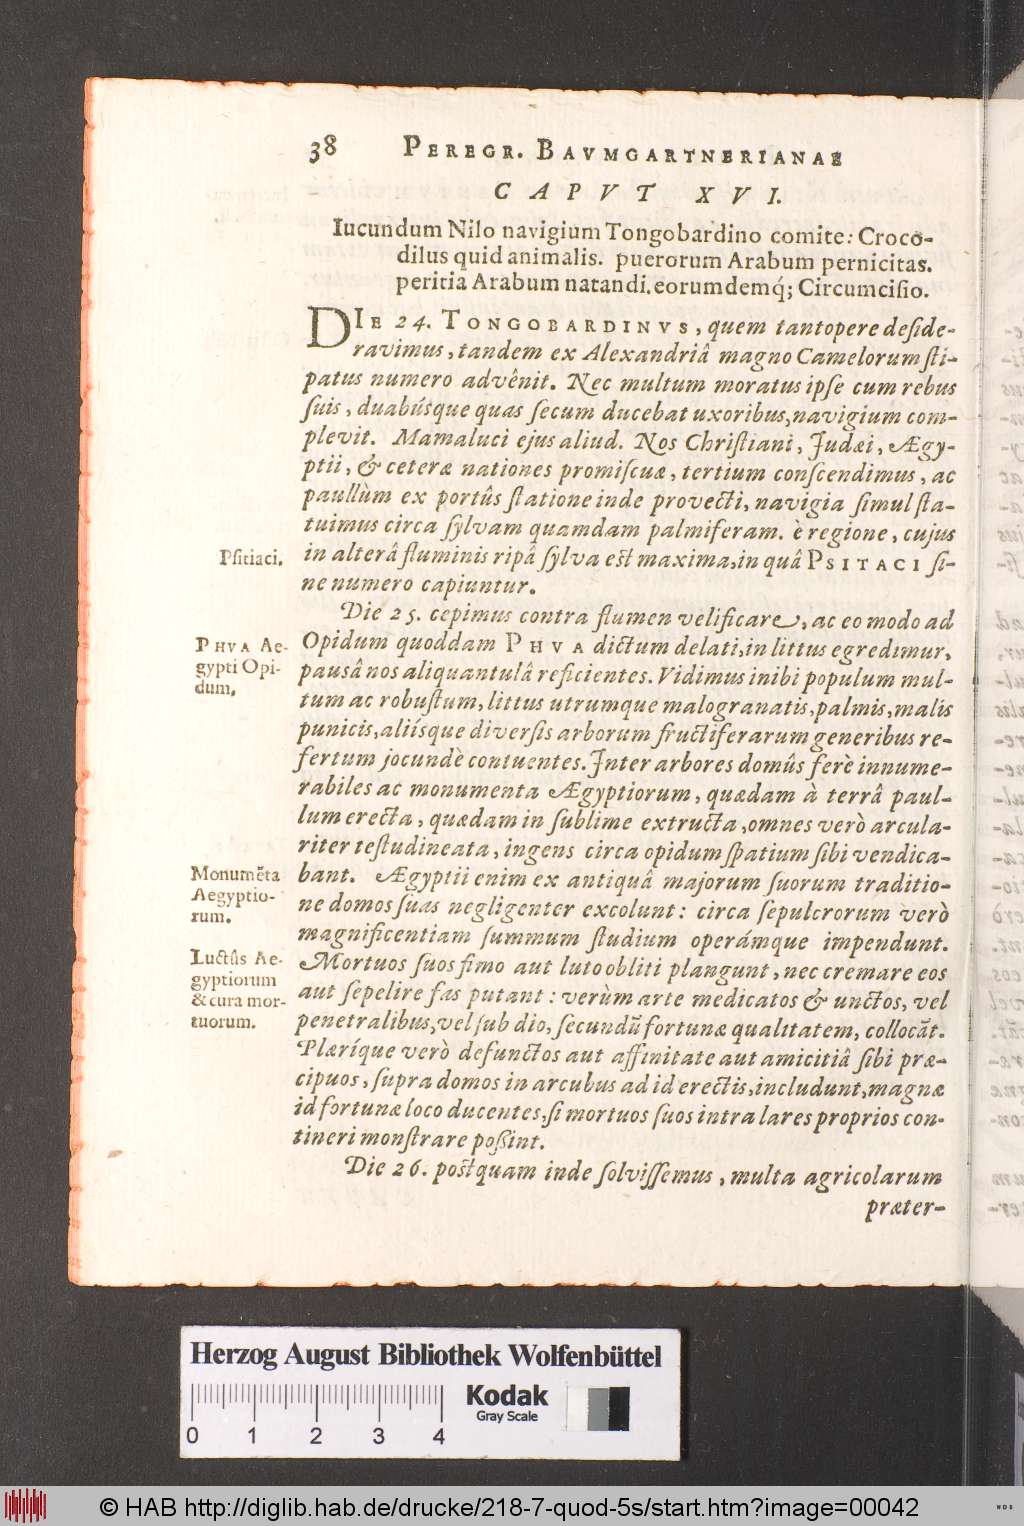 38 PEREGR. BAVMGARTNERIANAE
CAPVT XVI.
Iucundum Nilo navigium Tongobardino comite: Croco-
dilus quid animalis. puerorum Arabum pernicitas.
peritia Arabum natandi. eorumdemq́; Circumciſio.
DIE 24. TONGOBARDINVS, quem tantopere deſide-
ravimus, tandem ex Alexandriâ magno Camelorum ſti-
patus numero advênit. Nec multum moratus ipſe cum rebus
ſuis, duabúsque quas ſecum ducebat uxoribus, navigium com-
plevit. Mamaluci ejus aliud. Nos Chriſtiani, Judæi, Ægy-
ptii, & ceteræ nationes promiſcuæ, tertium conſcendimus, ac
paullùm ex portûs ſtatione inde provecti, navigia ſimul ſta-
tuimus circa ſylvam quamdam palmiferam. è regione, cujus
in alterâ fluminis ripâ ſylva est maxima, in quâ PSITACI ſi-
ne numero capiuntur.
Pſitiaci.
Die 25. cepimus contra flumen velificare, ac eo modo ad
Opidum quoddam PHVA dictum delati, in littus egredimur,
pausâ nos aliquantulâ reficientes. Vidimus inibi populum mul-
tum ac robuſtum, littus utrumque malogranatis, palmis, malis
punicis, aliísque diverſis arborum fructiferarum generibus re-
fertum jocundè contuentes. Inter arbores domûs ferè innume-
rabiles ac monumenta Ægyptiorum, quædam à terrâ paul-
lum erecta, quædam in ſublime extructa, omnes verò arcula-
riter teſtudineata, ingens circa opidum ſpatium ſibi vendica-
bant. Ægyptii enim ex antiquâ majorum ſuorum traditio-
ne domos ſuas negligenter excolunt: circa ſepulcrorum verò
magnificentiam ſummum ſtudium operámque impendunt.
Mortuos ſuos fimo aut luto obliti plangunt, nec cremare eos
aut ſepelire fas putant: verùm arte medicatos & unctos, vel
penetralibus, vel ſub dio, ſecundũ fortunæ qualitatem, collocãt.
Plæríque verò defunctos aut affinitate aut amicitiâ ſibi præ-
cipuos, ſupra domos in arcubus ad id erectis, includunt, magnæ
id fortunæ loco ducentes, ſi mortuos ſuos intra lares proprios con-
tineri monſtrare poßint.
PHVA Ae-
gypti Opi-
dum.
Monumẽta
Aegyptio-
rum.
Luctûs Ae-
gyptiorum
& cura mor-
tuorum.
Die 26. postquam inde ſolviſſemus, multa agricolarum
præter-
Herzog August Bibliothek Wolfenbüttel
Kodak
Gray Scale
0 1 2 3 4
© HAB http://diglib.hab.de/drucke/218-7-quod-5s/start.htm?image=00042